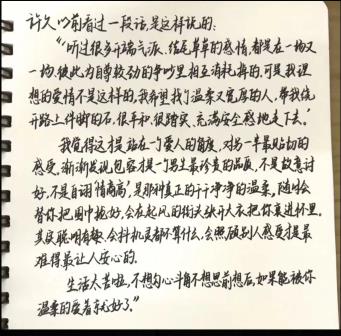 许久以前看过一段话,是这样说的:
"听过很多开端气派、结尾草草的感情,都是在一场又
一场彼此为自尊较劲的争吵里相互消耗掉的,可是我理
想的爱情不是这样的,我希望找个温柔又宽厚的人,带我绕
开路上绊脚的石,很平和、很踏实、充满安全感地走下去。'
我觉得这才是站在一个爱人的角度,对另一半最贴切的
感受,渐渐发现包容才是一个男生最珍贵的品质,不是故意讨
好,不是自诩"情商高",是那种真正的干干净净的温柔,随时会
替你把围巾挽好,会在起风的街头张开大衣把你裹进怀里。
其实聪明有趣、会抖机灵都不算什么,会照顾别人感受才是最
难得最让人安心的。
生活太苦啦,不想勾心斗角不想思前想后,如果能被你
温柔的爱着就好了。"